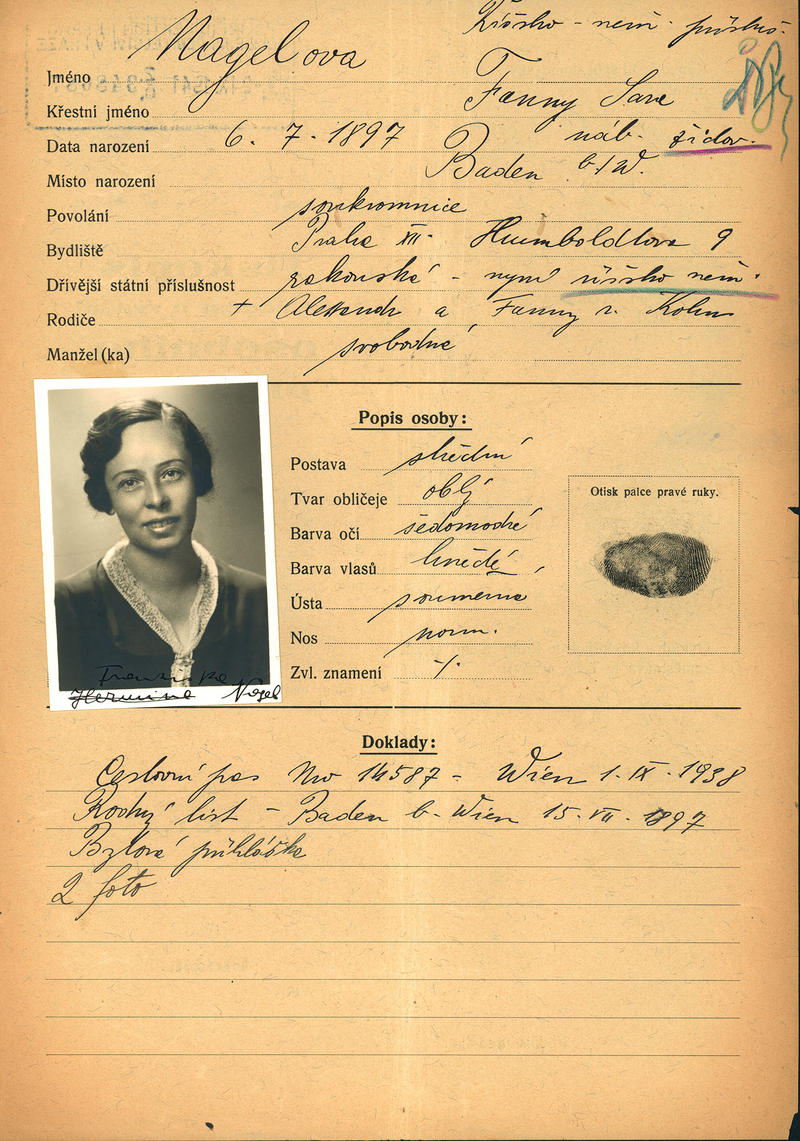 Nagelova
Říšsko - něm. přísluš.
Jméno
Fanny Sara
Křestní jméno
Data narození 6. 7. 1897 náb. židov.
Místo narození Baden b/W.
Povolání soukromnice
Bydliště Praha XII. Humboldtova 9
Dřívější státní příslušnost rakouská - nyní říšsko něm.
Rodiče + a Fanny r. Kohn
Manžel (ka) svobodná
Popis osoby:
Postava střední
Tvar obličeje oblý
Barva očí šedomodré
Barva vlasů hnědé
Ústa souměrná
Nos norm.
Zvl. znamení -/.
Otisk palce pravé ruky.
Franziska
Hermine Nagel
Doklady:
Cestovní pas No 14587 - Wien 1. IX. 1938
Rodný list - Baden b. Wien 15. VII. 1897
Bytová přihláška
2 foto